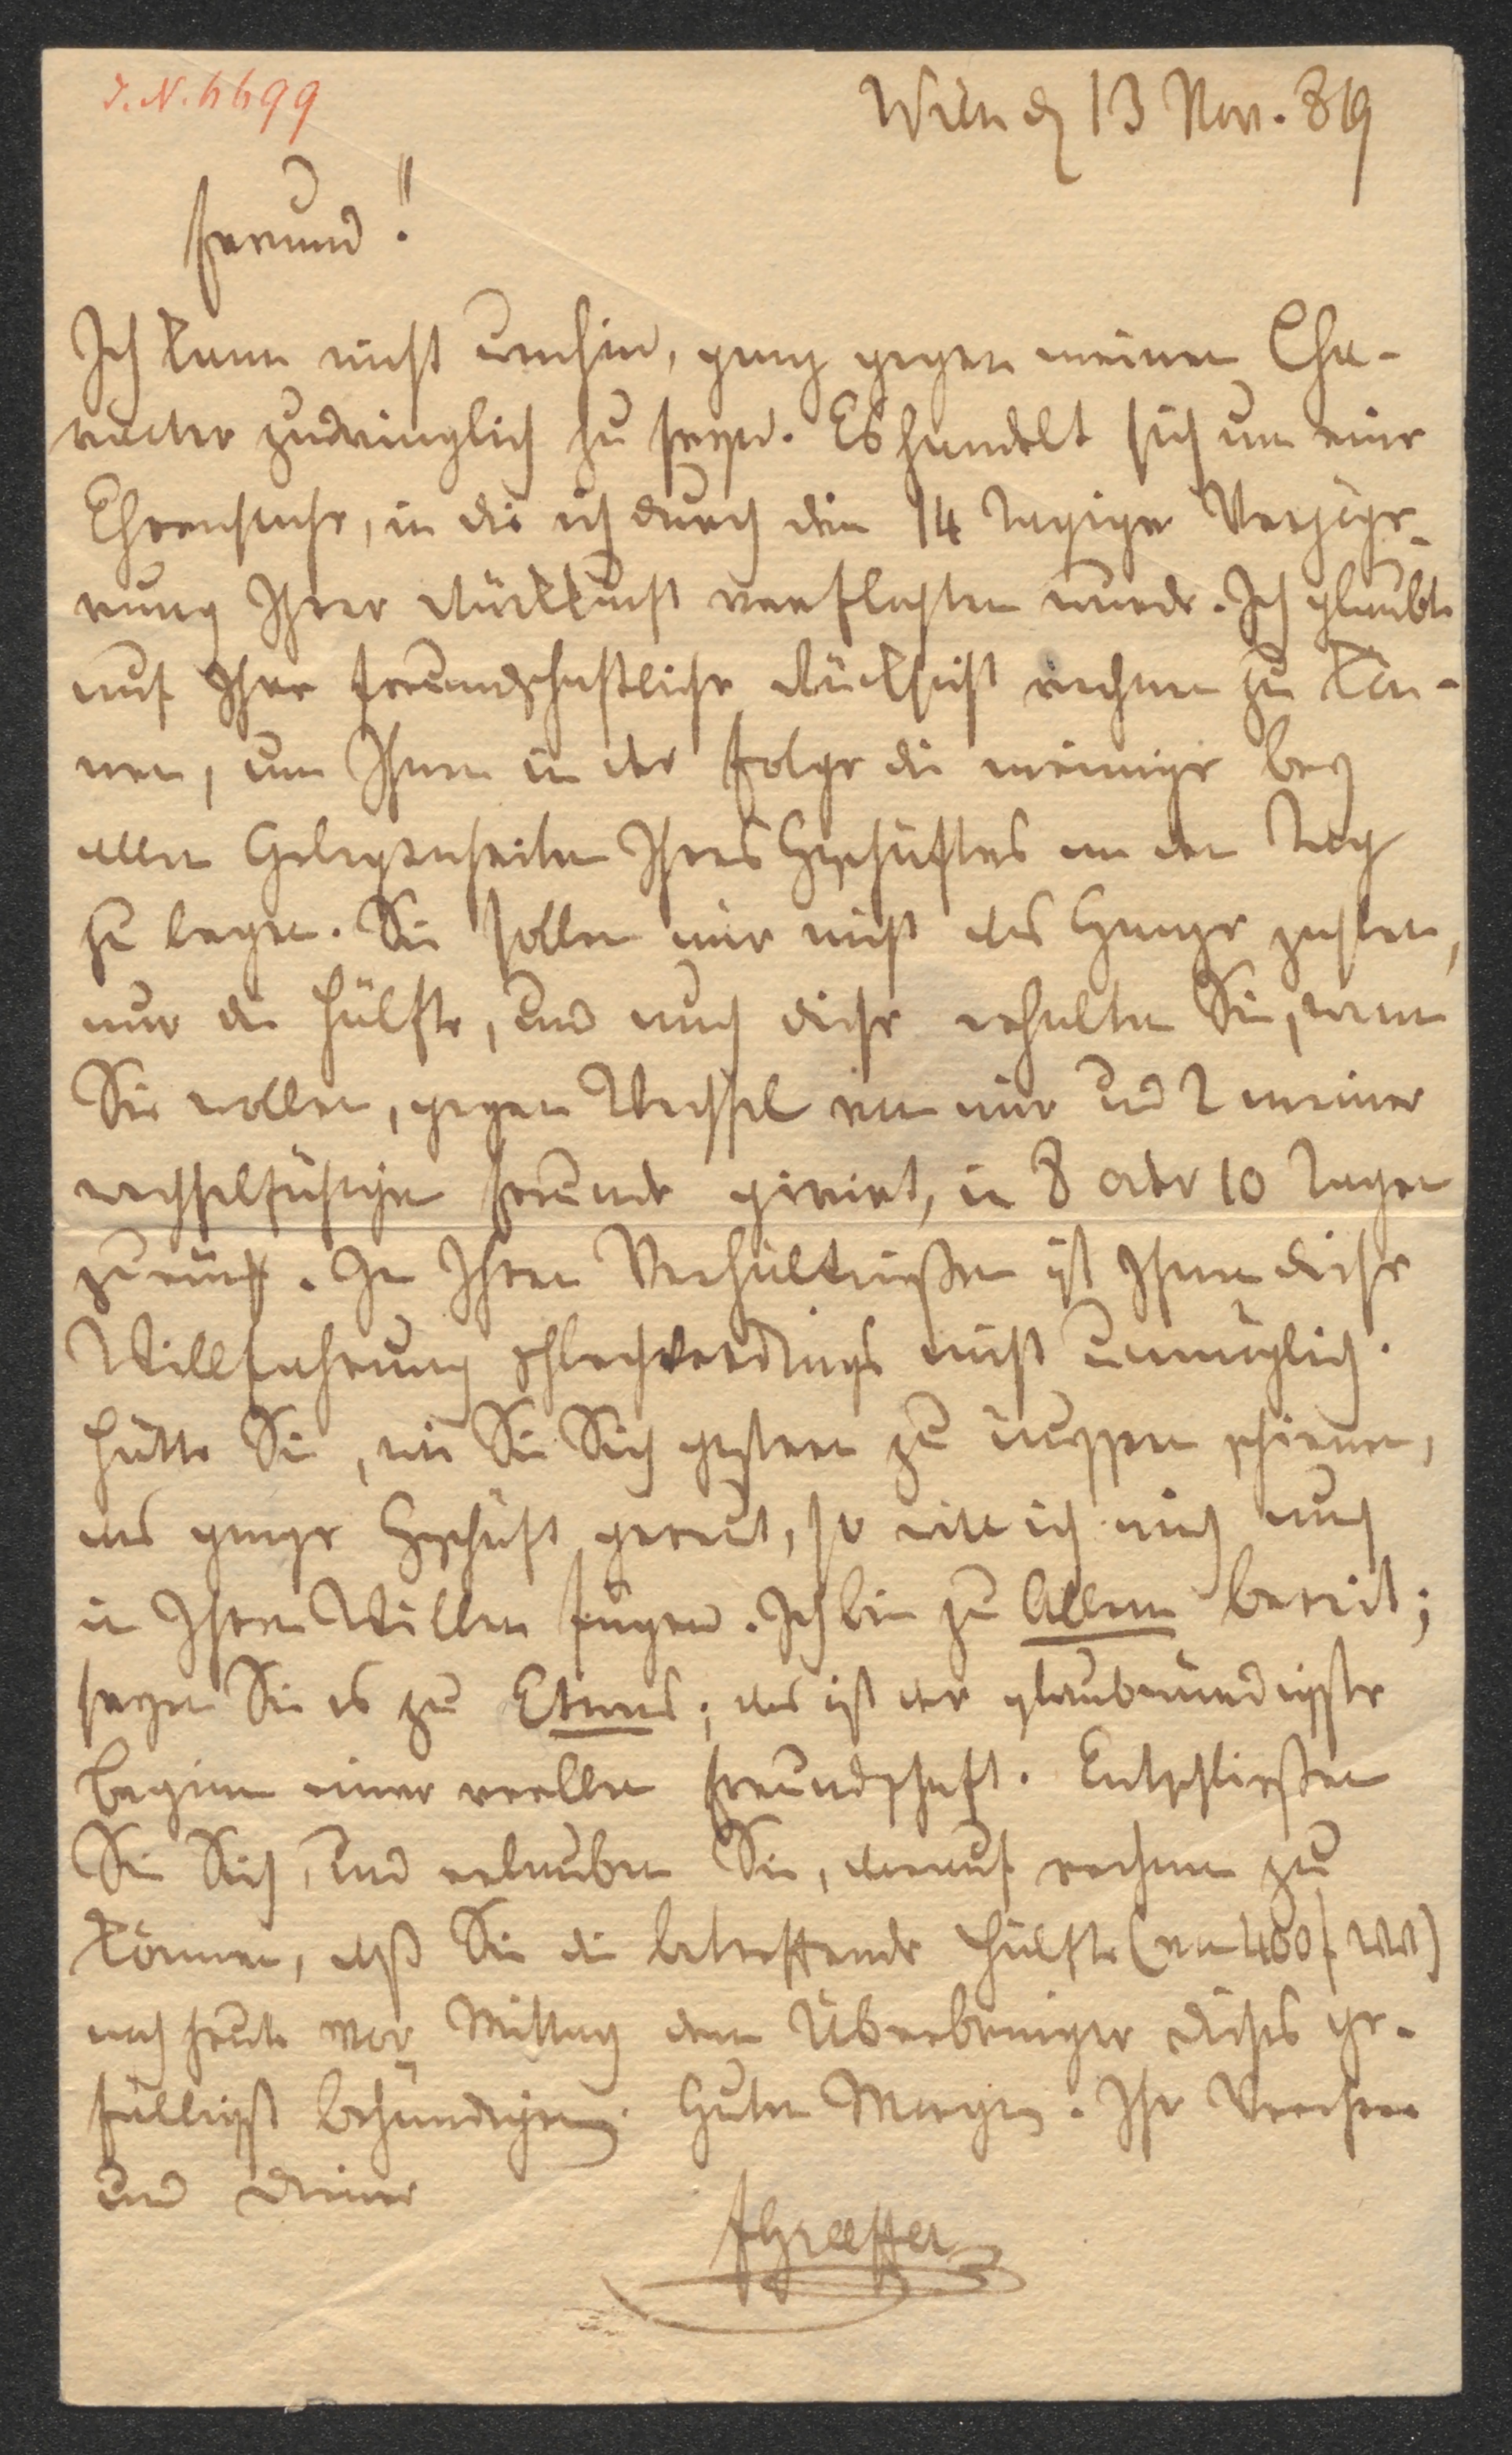 I. N. 6699
Wien d 13 Nov. 819
Freund!!
Ich kann nicht umhin, ganz gegen meinen Cha-
racter zudringlich zu seyn. Es handelt sich um eine
Ehrensache, in die ich durch die 14 tägige Verzöge-
rung Ihrer Rückkunft verflochten wurde. Ich glaubte
auf Ihre freundschaftliche Rücksicht rechnen zu kön-
nen, um Ihnen in der Folge die meinige bey
allen Gelegenheiten Ihres Geschäftes an den Tag
zu legen. Sie sollen mir nicht das Ganze
nur die Hälfte, und auch diese erhalten Sie, wenn
Sie wollen, gegen Wechsel von mir und 2 meiner
wechselfähigen Freunde girirt, in 8 oder 10 Tagen
zurück. In Ihren Verhältnißen ist Ihnen diese
Willfahrung schlechterdings nicht unmöglich.
Hätte Sie, wie Sie Sich gestern zu äussern schienen,
das ganze Geschäft gereut, so will ich mich auch
in Ihren Willen fügen. Ich bin zu Allem bereit;
seyen Sie es zu Etwas; das ist der glaubwürdigste
Beginn einer reellen Freundschaft. Entschließen
Sie Sich, und erlauben Sie, darauf rechnen zu
können, daß Sie die betreffende Hälfte (von 400 f WW)
noch heute vor Mittag dem Überbringer dieses ge-
fälligst behändigen. Guten Morgen. Ihr Verehrer
und Diener
FGräffer